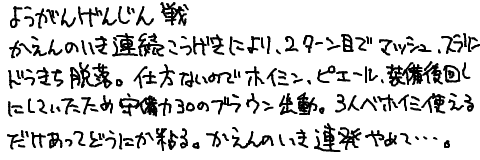 ようがんげんじん 戦
かえんのいき連続こうげきにより、2ターン目でマッシュ、スラリン
ドラきち脱落。仕方ないのでホイミン、ピエール、装備後回し
にしていたため守備力30のブラウン出動。3人ベホイミ使える
だけあってどうにか粘る。かえんのいき連発やめて…。